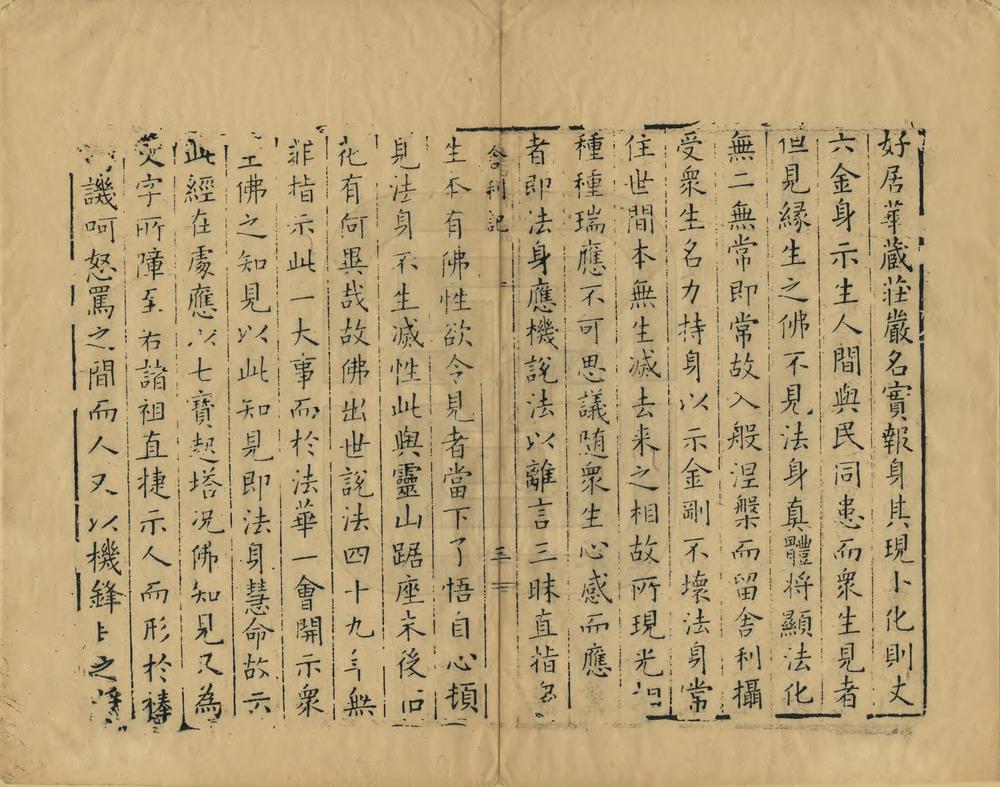 好居華藏莊嚴名實報身其現小化則丈
六金身示生人間與民同患而衆生見者
但見緣生之佛不見法身真體將顯法化
無二無常即常故入般涅槃而留舍利攝
受衆生名力持身以示金剛不壞法身常
住世間本無生滅去来之相故所現光
種種瑞應不可思議随衆生心感而應
者即法身應機說法以離言三昧直指
舍利記
三
生本有佛性欲令見者當下了悟自心頓
見法身不生滅性此與靈山踞座末後
花有何異哉故佛出世說法四十九年無
非指示此一大事而於法華一會開示衆
生佛之知見以此知見即法身慧命故云
此經在處應以七寶起塔况佛知見又為
文字所障至若諸祖直捷示人而形於棒
譏呵怒罵之間而人又以機鋒上之